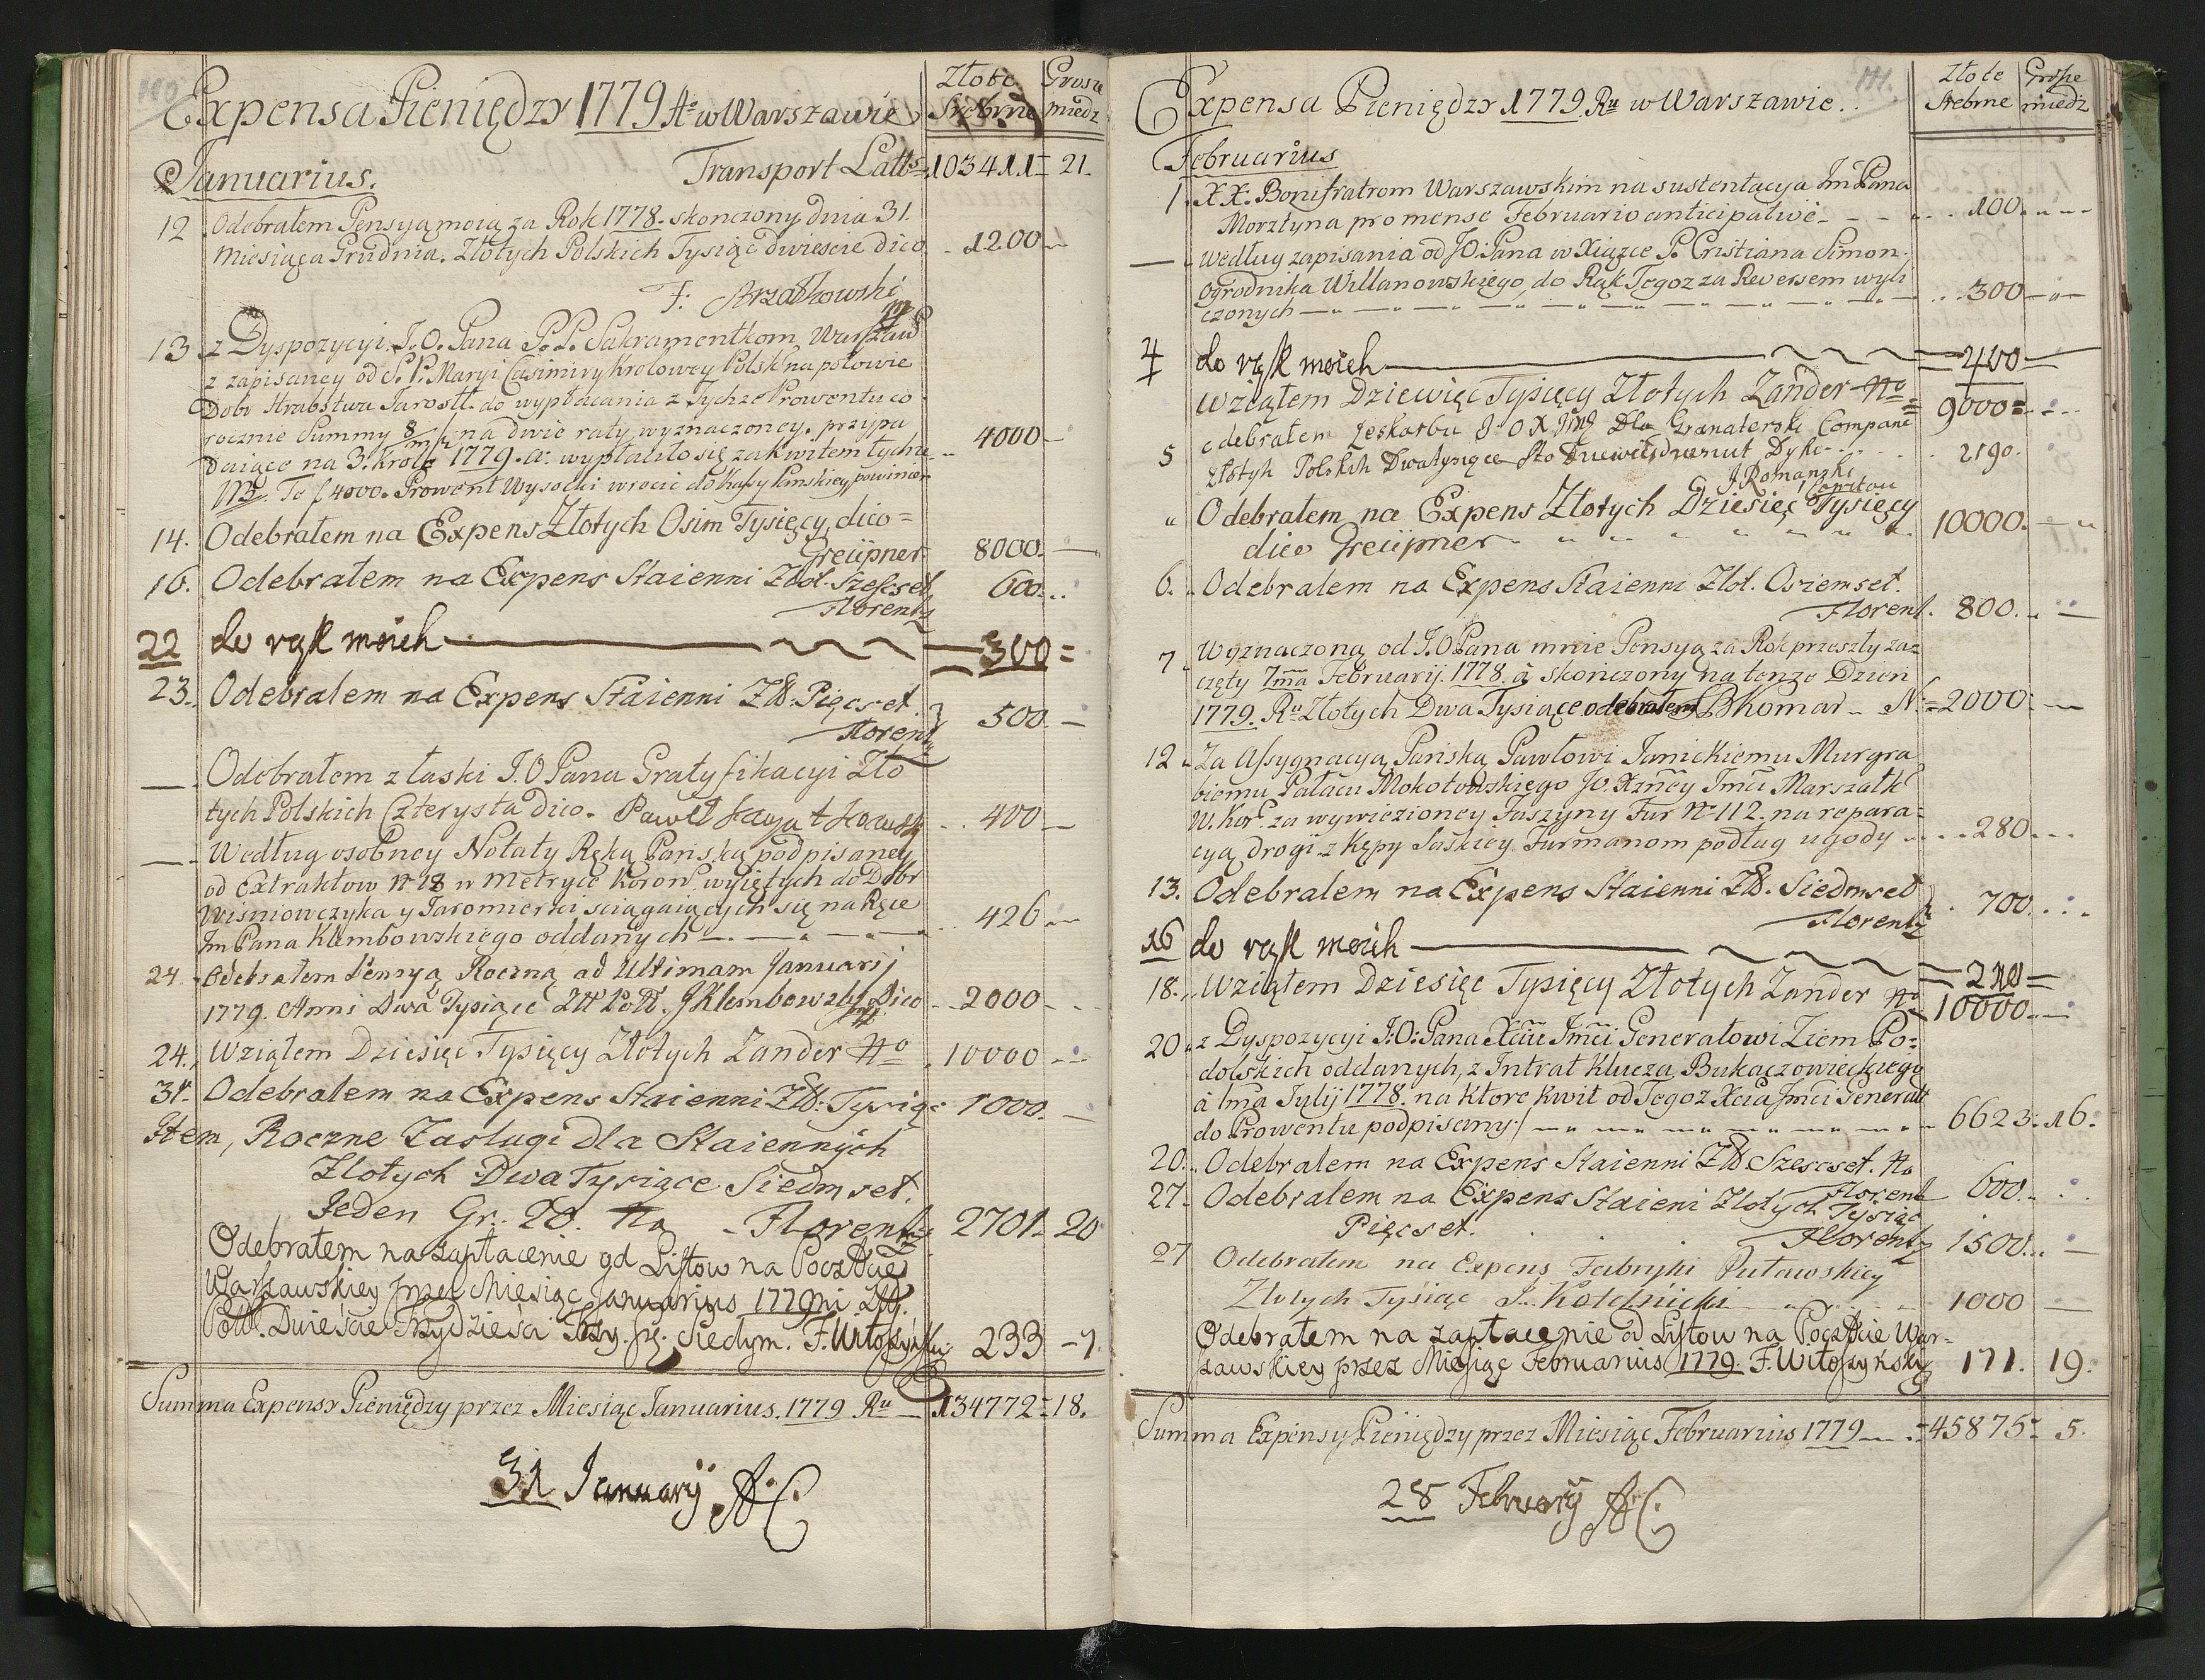 Expensa Pieniędzy 1779 Ao w Warszawie
Złote Grosze
Srebrne miedz
Januarius. Transport Latts 103411 = 21.
12. Odebrałem Pensyą moią za Rok 1778. skonczony dnia 31.
Miesiąca Grudnia. Złotych Polskich Tysiąc dwiescie dico 1200
F:
13. z Dyspozycyi J. O. Pana P. P. Sakramentkom Warszaw
z zapisaney od S. P. Maryi Casimiry Krolowey Polsk na połowie
Dobr Hrabstwa Jarosł. do wypłacania z Tychze Prowentu co
rocznie Summy 8/m f. na dwie raty wyznaczoney. przypa
daiące na 3. Krole 1779. a: wypłaciło się za kwitem tychze 4000
NB. Te f 4000. Prowent Wysocki wrocic do Kassy Panskiey powinien
14. Odebrałem na Expens Złotych Osim Tysięcy dico =
Greüpner 8000.
16. Odebrałem na Expens Staienni Złot. Szescset 600.
Florentz
22 do rąk moich 300 =
23. Odebralem na Expens Staienni Zł: Pięcset 500.
Florentz
Odebrałem z łaski J. O Pana Gratyfikacyi Zło
tych Polskich Czterysta dico. Paweł 400
Według osobney Notaty Ręką Panską podpisaney
od Extraktow No 18 w Metryce Koron. wyiętych do Dobr
Wisniowczyka y Jaromierki sciągaiących się na Ręce
Jm Pana Klembowskiego oddanych 426
24. Odebrałem Pensyą Roczną ad Ultimam Januarij
1779. Anni Dwa Tysiące Zł Pol. J Klembowski Dico 2000
24. Wziąłem Dziesięc Tysięcy Złotych Zander 10000
31. Odebralem na Expens Staienni Zł: Tysiąc 1000.
Item, Roczne Zasługi dla Staiennych
Zlotych Dwa Tysiące Siedmset.
Jeden Gr. 20. Florentz 2701. 20
Odebrałem na zapłacenie od Listow na Poczscie
Warszawskiey przez Miesiąc Januarius 1779ni Zł.
Pol. Dwieście Trzydzieści Trzy. gr. Siedym. F. Witoszynski 233 - 7.
Summa Expensy Pieniędzy przez Miesiąc Januarius. 1779 Ru 134772 = 18.
31 January AC
111.
Expensa Pieniędzy 1779. Ru w Warszawie.
Złote Grosze
Srebrne miedz
Februarius
1. XX. Bonifratrom Warszawskim na sustentacyą Jm Pana
Morztyna pro mense Februario anticipative 100.
Według zapisania od JO: Pana w Xiązce P. Cristiana Simon
Ogrodnika Willanowskiego, do Rąk Tegoz za Rewersem wyli
czonych 300
4 do rąk moich 400
Wziąłem Dziewięc Tysięcy Złotych Zander No 9000
5 odebrałem ze skarbu J O X Jmę Dla Granaterski Compane
złotyh Polskih Dwatysące Sto Dziewiędziesiut Dyko 2190.
J Romanski
Capitan
" Odebrałem na Expens Złotych Dziesięc Tysięcy
dico Greüpner 10000.
6. Odebralem na Expens Staienni Złot. Osiemset.
Florent. 800.
7. Wyznaczoną od J. O Pana mnie Pensyą za Rok przeszły zaz
częty 7ma Februarij. 1778. a skończony na tenze Dzien
1779. Ru Złotych Dwa Tysiące odebrałem SBKomar 2000
12. Za Assygnacyą Panską Pawłowi Janickiemu Murgra
biemu Pałacu Mokotowskiego JO. Xzncy Jmci Marszałk
W. Kor. za wywiezioney Faszyny Fur No 112. na repara=
cyą drogi z Kępy Saskiey Furmanom podług ugody 280.
13. Odebralem na Expens Staienni Zł. Siedmset 700.
Florentz
16 do rąk moich
18. Wziąłem Dziesięc Tysięcy Złotych Zander No 10000.
20. z Dyspozycyi J: O: Pana Xciu Jmci Generałowi Ziem Po=
dolskich oddanych, z Intrat Klucza Bukaczowieckiego
a 1ma Julij 1778. na ktore kwit od Tegoz Xcia Jmci Generała
do Prowentu podpisany 6623: 16.
20. Odebralem na Expens Staienni Zł Szescset. No
Florentz 600.
27. Odebralem na Expens Staieni Złotych Tysiąc
Pięcset. Florentz 1500.
27 Odebrałem na Expens Fabryki Puławskiey
Złotych Tysiąc J. 1000
Odebrałem na zapłacenie od Listow na Poczscie War=
szawskiey przez Miesiąc Februarius 1779. F. Witoszynski 171. 19.
Summa Expensy Pieniędzy przez Miesiąc Februarius 1779 45875 = 5.
28 February AC